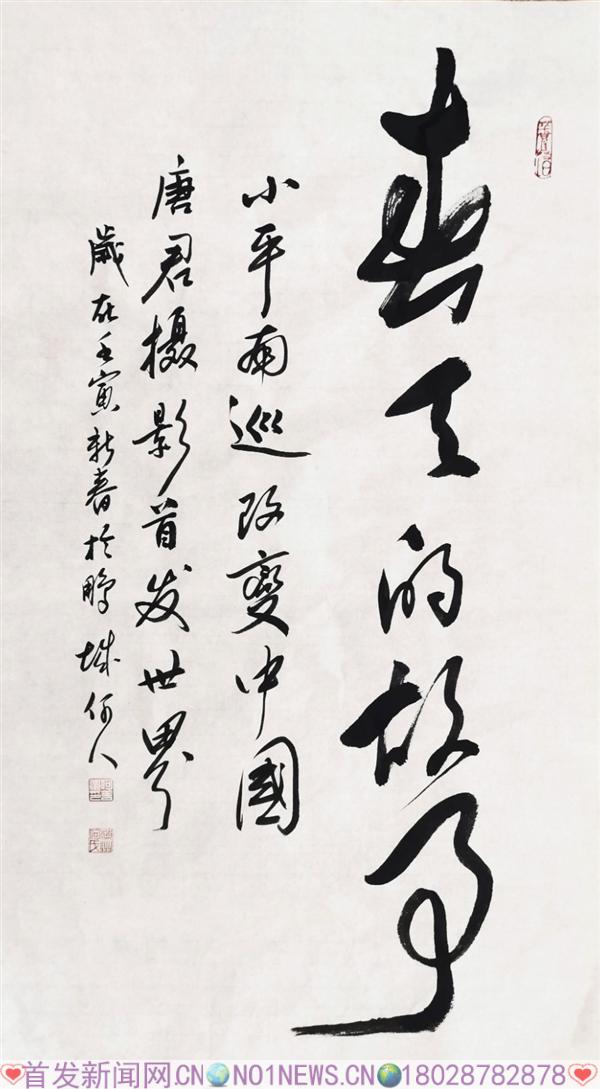 春天的故事
小平南巡改變中國
唐君摄影首发世界
歲在壬寅新春於鹏城何人
首发新闻网.CN NO1NEWS.CN 18028782878